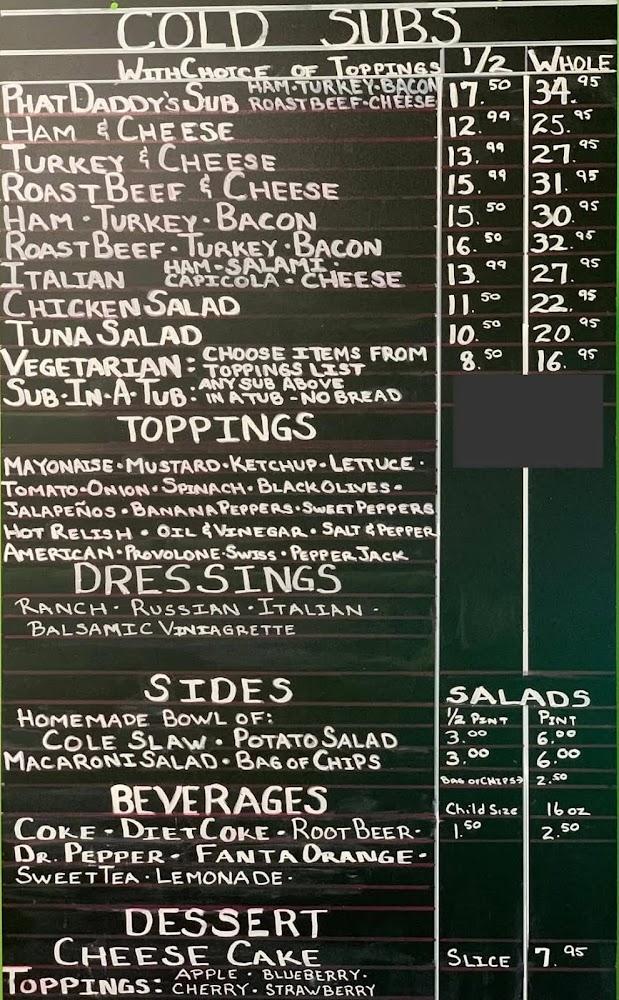 COLD SUBS
WITH CHOICE OF TOPPINGS 1/2 WHOLE
PHAT DADDY'S SUB HAM·TURKEY·BACON ROAST BEEF·CHEESE 17.50 34.95
HAM & CHEESE 12.99 25.95
TURKEY & CHEESE 13.99 27.95
ROAST BEEF & CHEESE 15.99 31.95
HAM·TURKEY·BACON 15.50 30.95
ROAST BEEF·TURKEY·BACON 16.50 32.95
ITALIAN HAM·SALAMI· CAPICOLA·CHEESE 13.99 27.95
CHICKEN SALAD 11.50 22.95
TUNA SALAD 10.50 20.95
VEGETARIAN: CHOOSE ITEMS FROM TOPPINGS LIST 8.50 16.95
SUB·IN·A·TUB: ANY SUB ABOVE IN A TUB - NO BREAD
TOPPINGS
MAYONAISE·MUSTARD·KETCHUP·LETTUCE·
TOMATO·ONION·SPINACH·BLACK OLIVES·
JALAPEÑOS·BANANA PEPPERS·SWEET PEPPERS
HOT RELISH·OIL & VINEGAR·SALT & PEPPER
AMERICAN·PROVOLONE·SWISS·PEPPER JACK
DRESSINGS
RANCH·RUSSIAN·ITALIAN·
BALSAMIC VINIAGRETTE
SIDES SALADS
HOMEMADE BOWL OF: 1/2 PINT PINT
COLE SLAW·POTATO SALAD 3.00 6.00
MACARONI SALAD·BAG OF CHIPS 3.00 6.00
BAG OF CHIPS→ 2.50
BEVERAGES Child Size 16 oz
COKE·DIET COKE·ROOT BEER· 1.50 2.50
DR. PEPPER·FANTA ORANGE·
SWEET TEA·LEMONADE·
DESSERT
CHEESE CAKE SLICE 7.95
TOPPINGS: APPLE·BLUEBERRY· CHERRY·STRAWBERRY